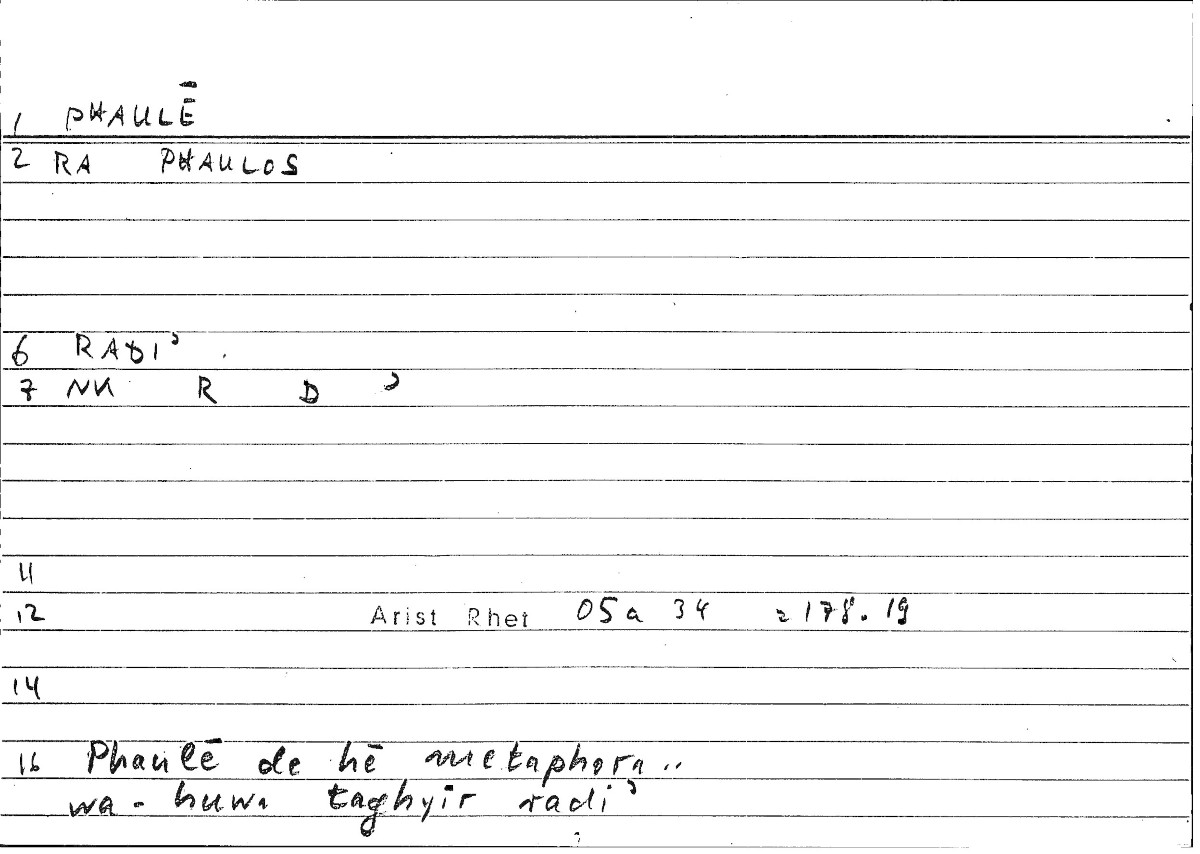 1 PHAULĒ
2 RA PHAULOS
6 RADI'
7 NK R D '
11
12 Arist Rhet 05a 34 = 178.19
14
16 Phaulē de hē metaphora..
wa-huwa taghyīr radi'